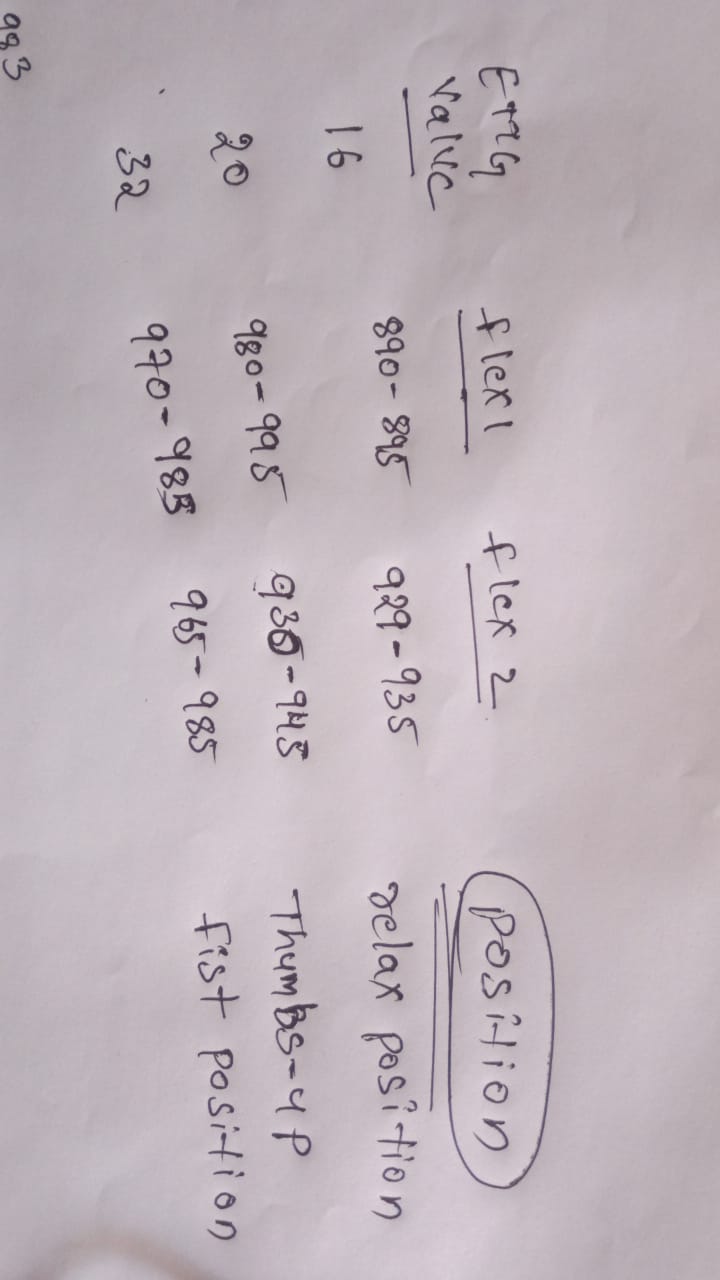 EMG flex 1 flex 2 position
Value
890-895 929-935 relax position
16
980-995 930-945 Thumbs-up
20
970-985 965-985 fist position
32
983